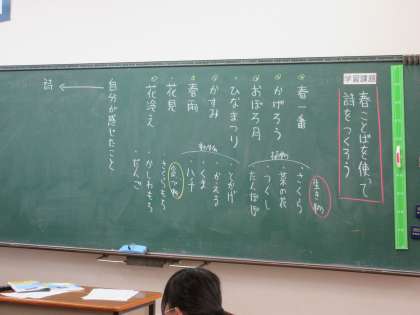 学習課題
春ことばを使って
詩をつくろう
春一番
かげろう
おぼろ月
・ひなまつり
かすみ
春雨
・花見
花冷え
生き物
植物
・さくら
・菜の花
・つくし
・たんぽぽ
動物
・とかげ
・かえる
・くま
・ハチ
食べ物
・さくらもち
・かしわもち
・だんご
自分が感じたこと
詩